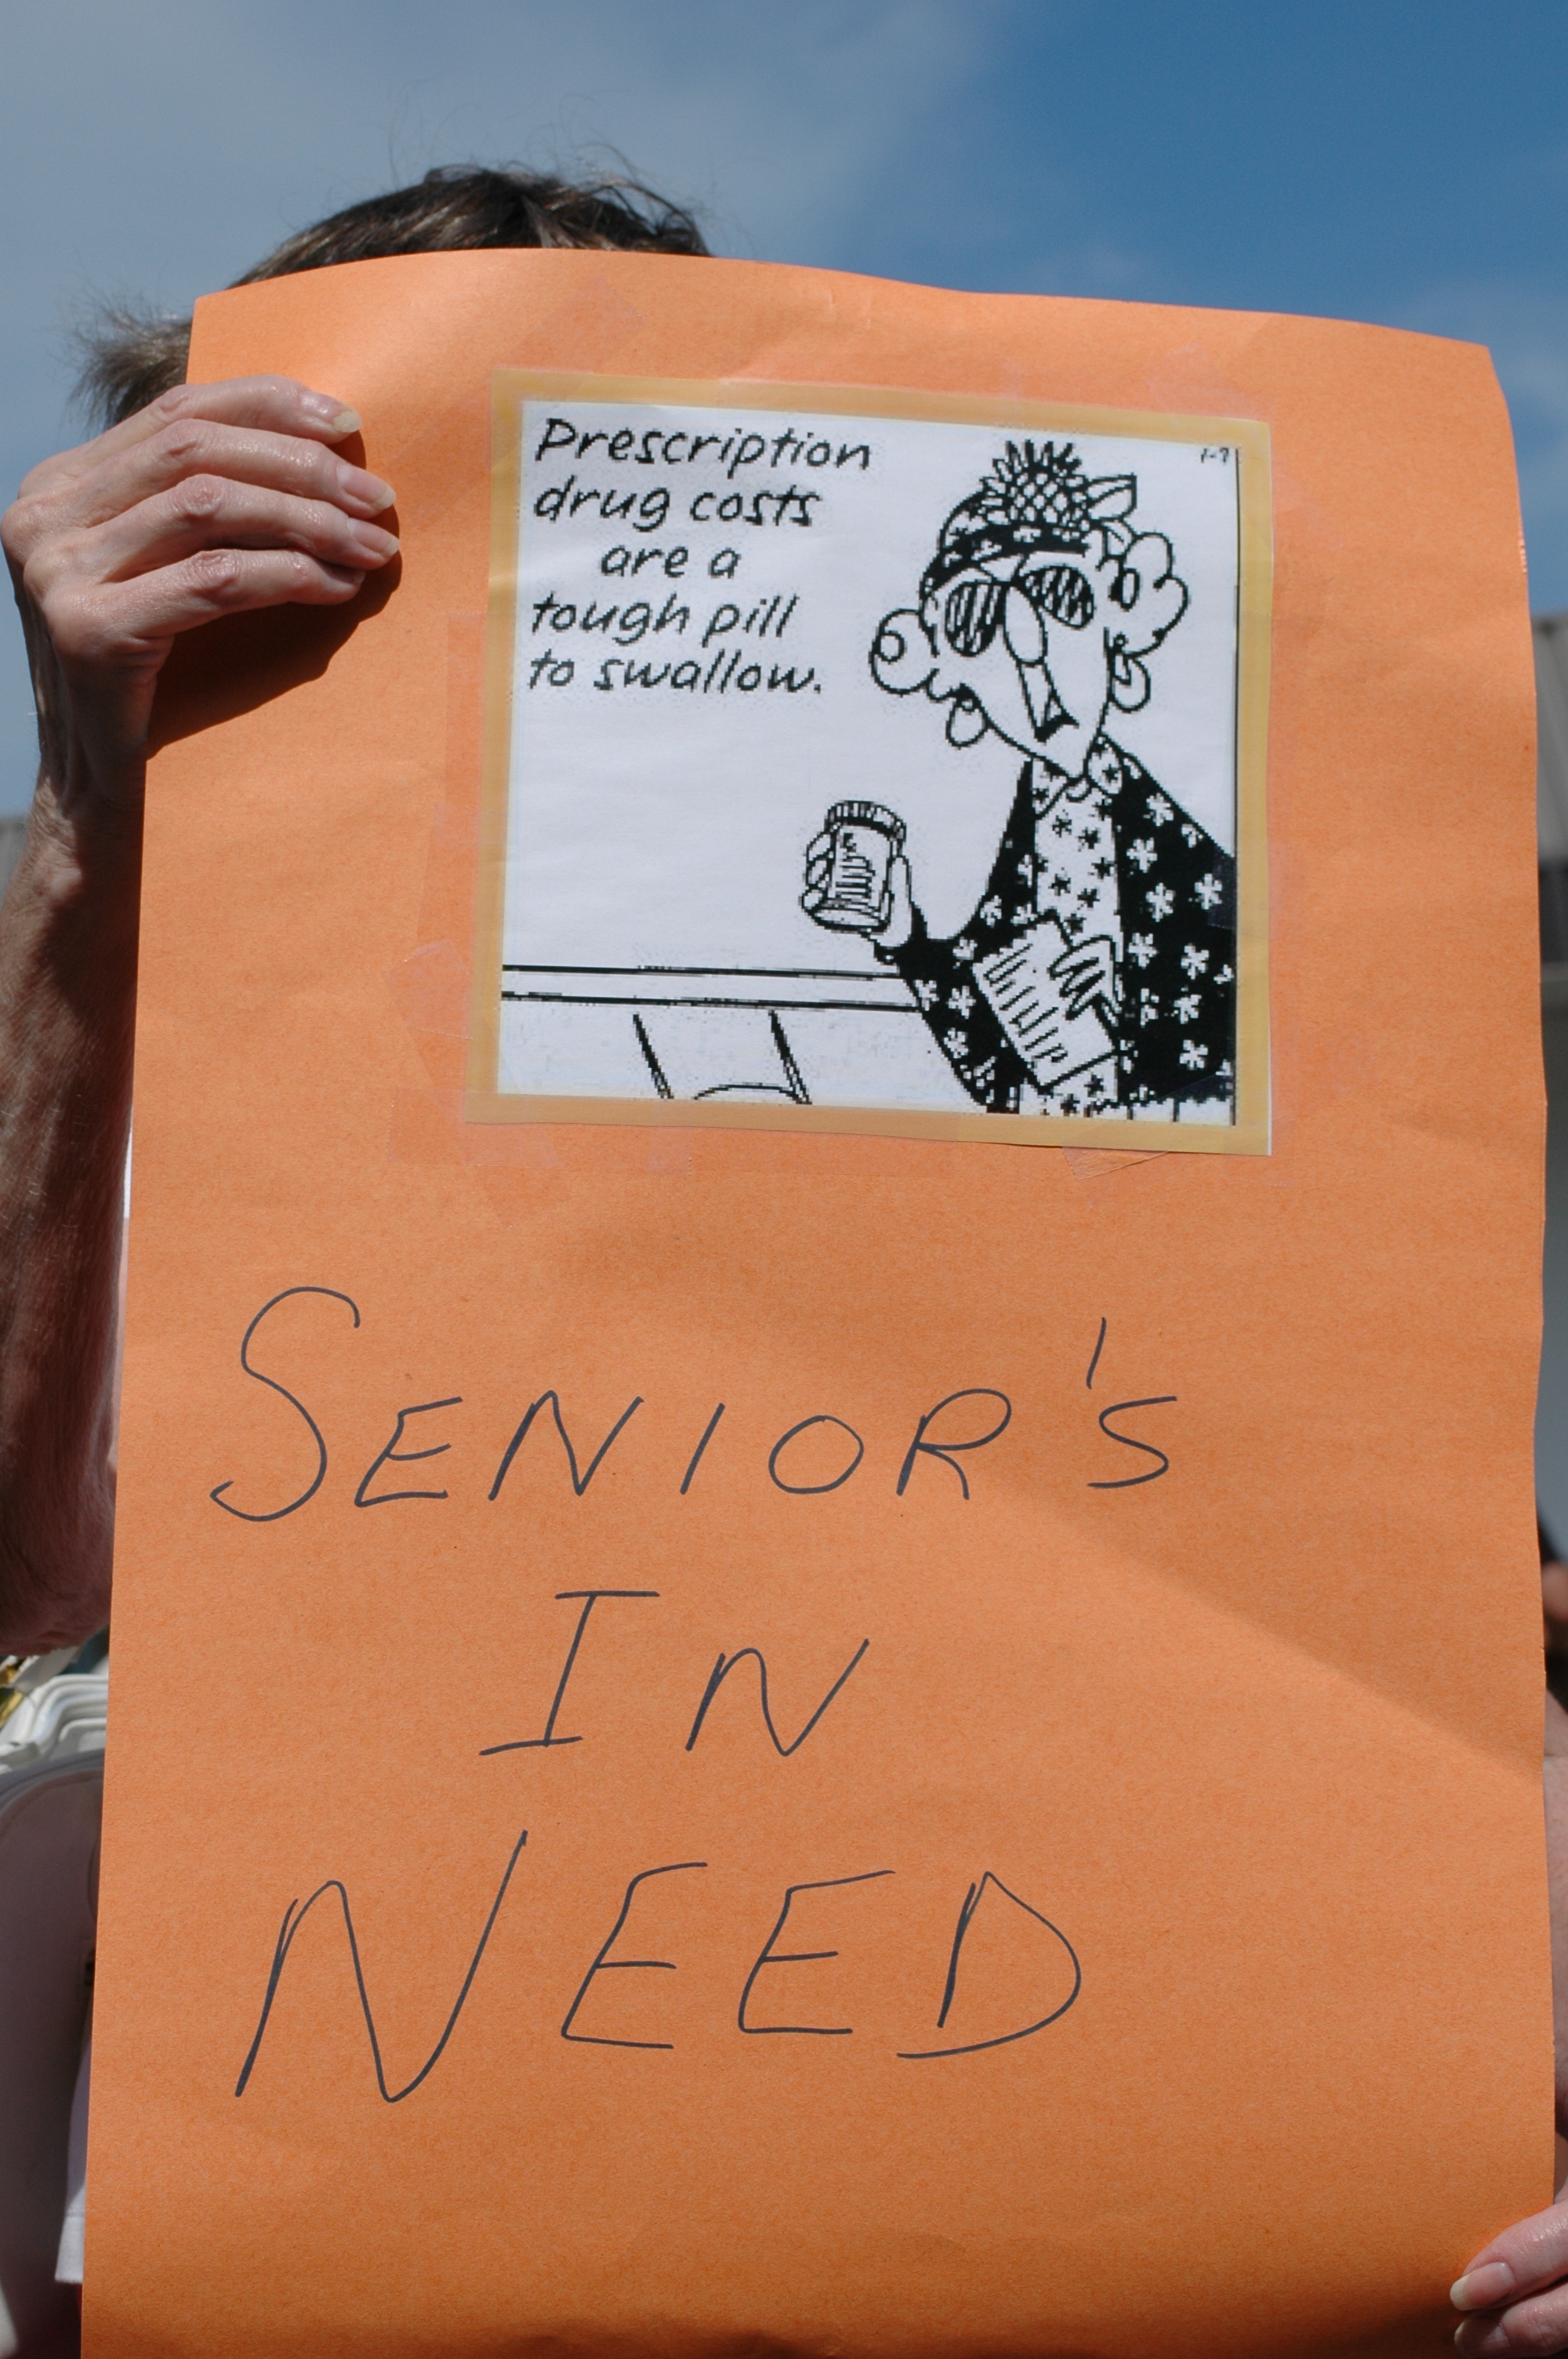 Prescription
drug costs
are a
tough pill
to swallow.
1-7
SENIOR'S
IN
NEED